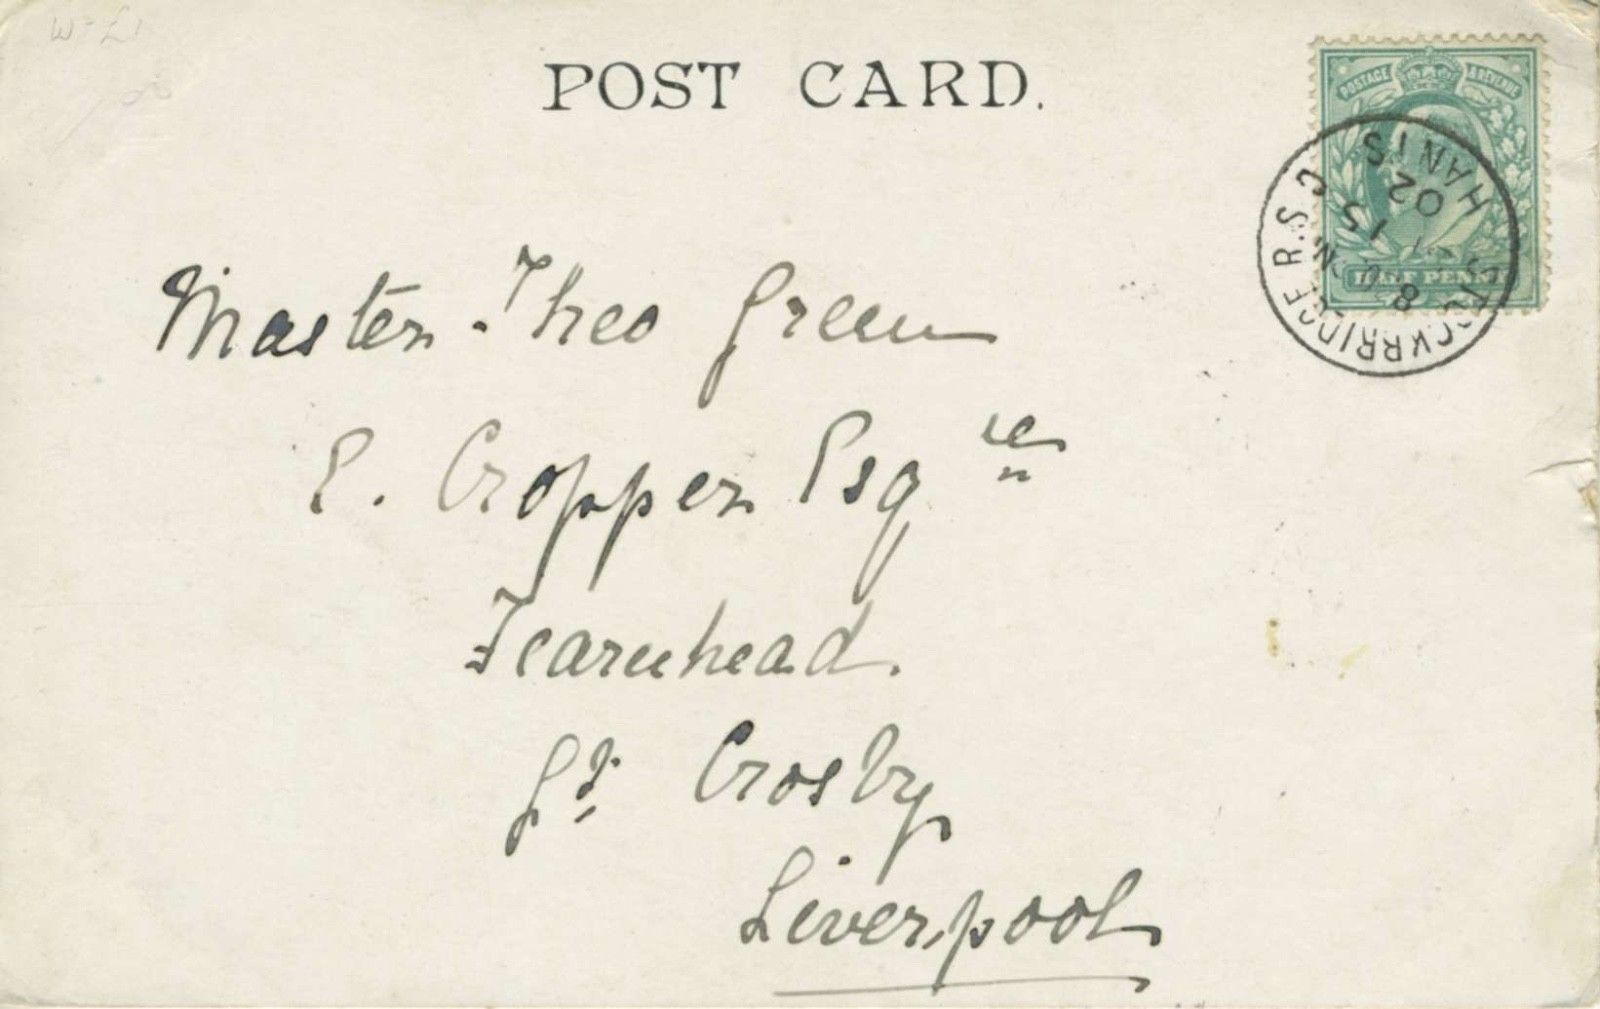 W-£1
POST CARD.
POSTAGE & REVENUE
HALF PENNY
STOCKBRIDGE R.S.O
HANTS
15
02
Master Theo Green
E. Cropper Esqre
Fearnhead.
Gt. Crosby
Liverpool